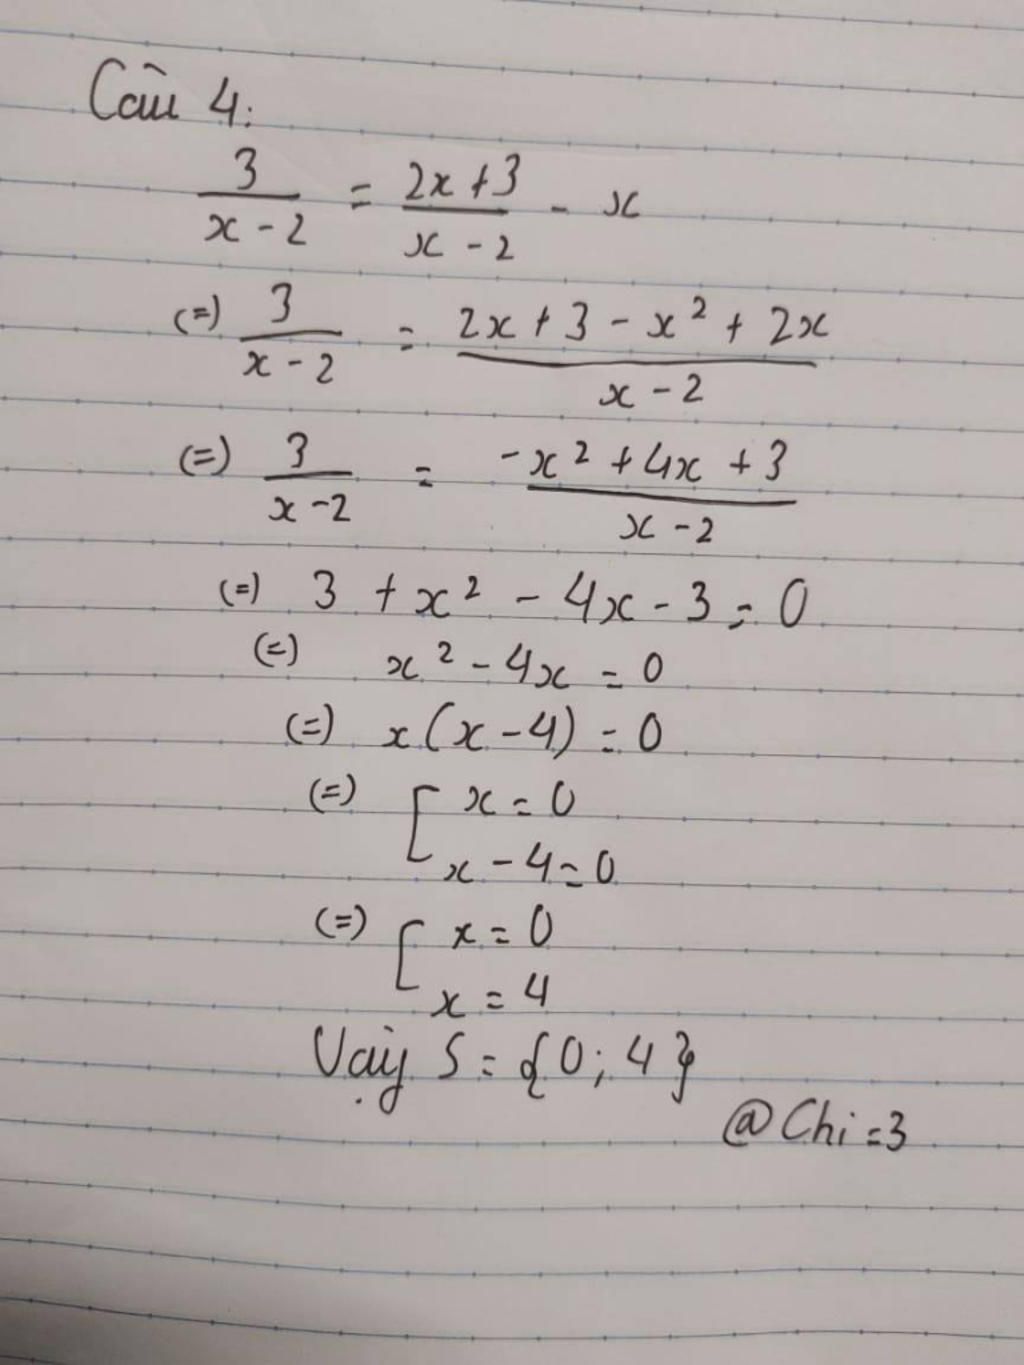 Câu 4:
3/(x-2) = (2x+3)/(x-2) - x
(=) 3/(x-2) = (2x+3-x²+2x)/(x-2)
(=) 3/(x-2) = (-x²+4x+3)/(x-2)
(=) 3 + x² - 4x - 3 = 0
(=) x² - 4x = 0
(=) x(x-4) = 0
(=) [ x = 0
x - 4 = 0
(=) [ x = 0
x = 4
Vậy S = {0; 4}
@Chi=3